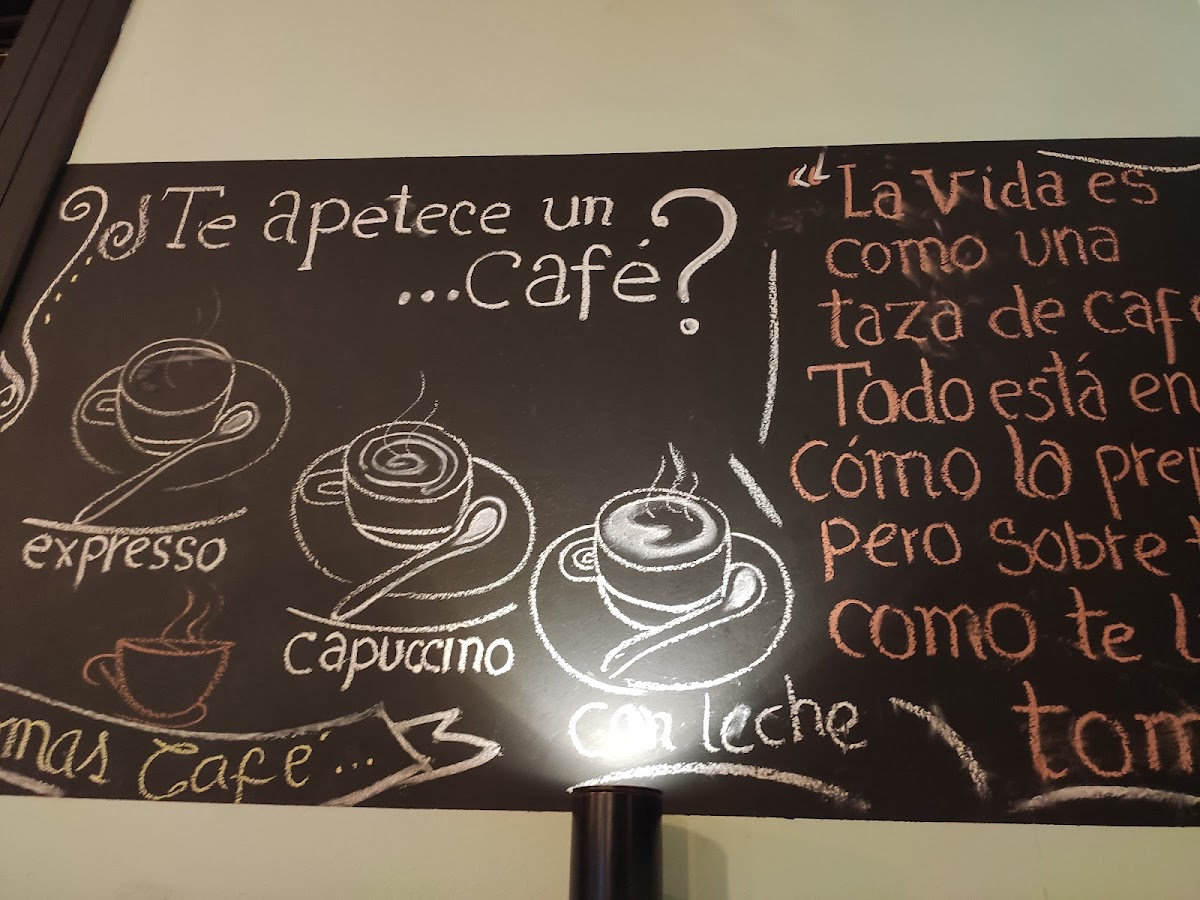 ¿Te apetece un
...Café?
expresso
capuccino
con leche
mas Café...
“La Vida es
como una
taza de café
Todo está en
cómo la prep
pero sobre t
como te l
tom